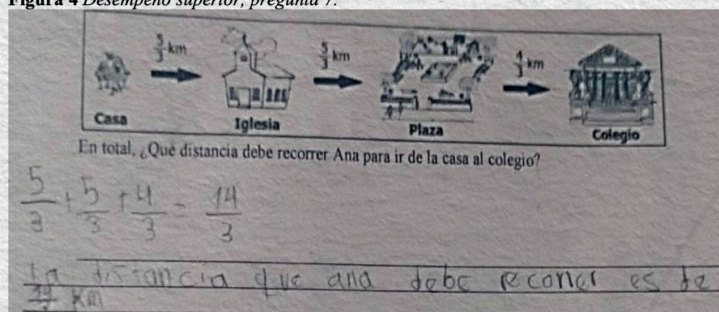 Figura 4 Desempeño superior, pregunta 7.
5/3 km 5/3 km 4/3 km
Casa Iglesia Plaza Colegio
En total, ¿Qué distancia debe recorrer Ana para ir de la casa al colegio?
5/3 + 5/3 + 4/3 = 14/3
la distancia que ana debe recorrer es de
14/3 km